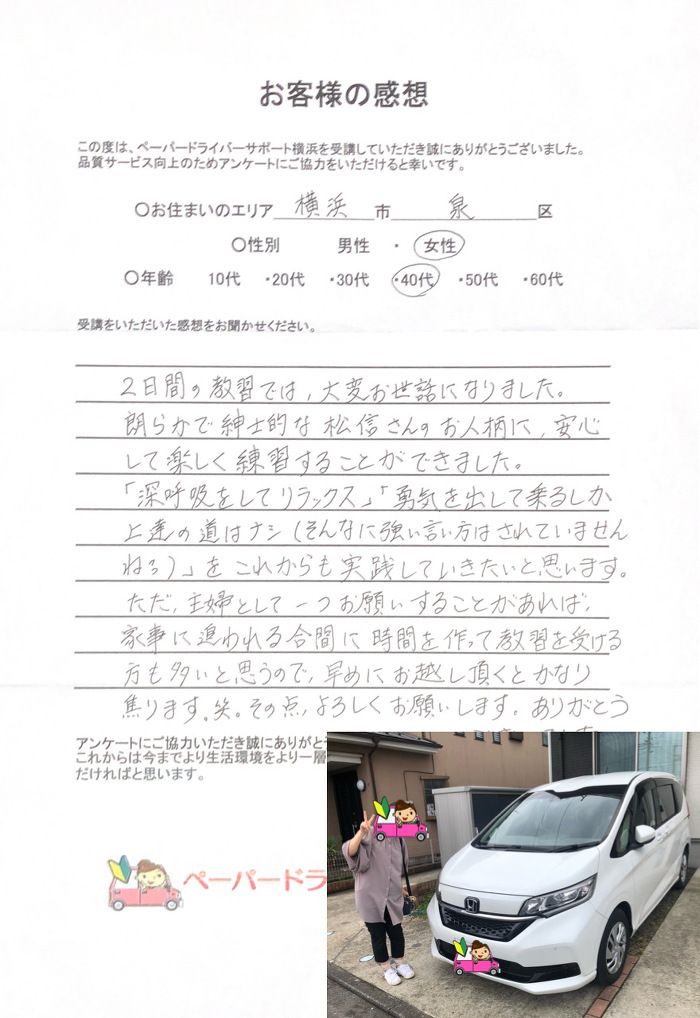 お客様の感想
この度は、ペーパードライバーサポート横浜を受講していただき誠にありがとうございました。
品質サービス向上のためアンケートにご協力をいただけると幸いです。
〇お住まいのエリア 横浜 市 泉 区
〇性別 男性 ・ 女性
〇年齢 10代 ・20代 ・30代 ・40代 ・50代 ・60代
受講をいただいた感想をお聞かせください。
2日間の教習では、大変お世話になりました。
朗らかで紳士的な松信さんのお人柄に、安心
して楽しく練習することができました。
「深呼吸をしてリラックス」「勇気を出して乗るしか
上達の道はナシ（そんなに強い言い方はされていません
ねぅ）」をこれからも実践していきたいと思います。
ただ、主婦として一つお願いすることがあれば、
家事に追われる合間に時間を作って教習を受ける
方も多いと思うので、早めにお越し頂くとかなり
焦ります。笑。その点、よろしくお願いします。ありがとう
アンケートにご協力いただき誠にありがと
これからは今までより生活環境をより一層
だければと思います。
ペーパードラ